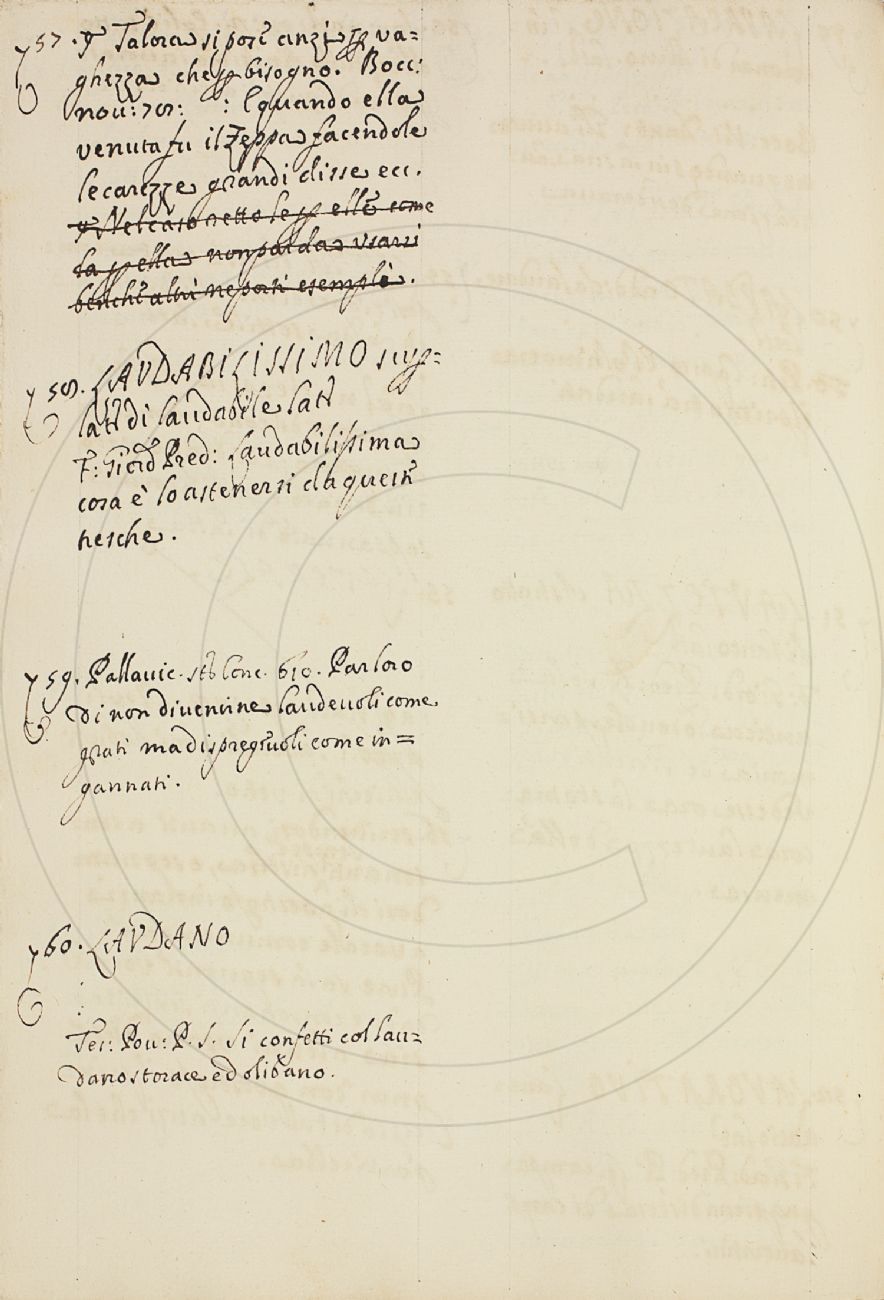 57. § Talora si pone anzi per va=
ghezza che per bisogno. Bocc:
nov: 78: : E quando ella
venuta fu il Zeppa facendole
le carezze grandi disse ecc.
§ Nel caso retto le per elle come
la per ella non par da usarsi
benché altri ne porti esemple.
58. LAUDABILISSIMO sup=
lati di laudabile Lati
F: Giord Pred: Laudabilissima
cosa è lo astenersi da queste
tresche.
59. Pallavic. Conc. 610. Par loro
di non divenirne laudevoli come
grati ma dispregevoli come in=
gannati.
60. LAUDANO
Tes: Pov: P. S. Si confetti col lau=
dano storace ed olibano.